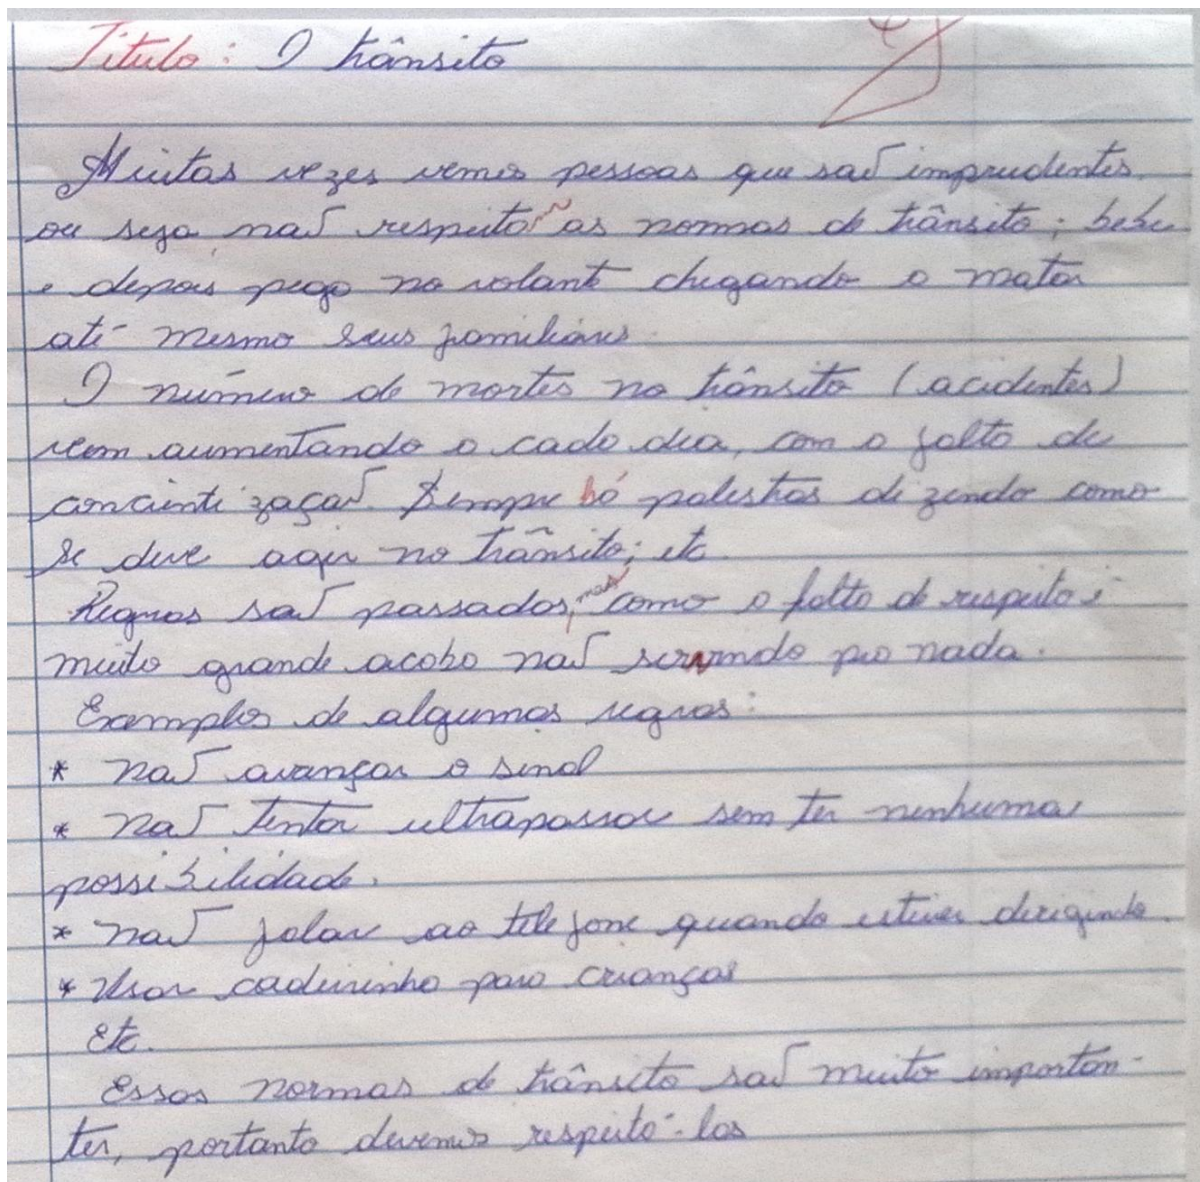 Título: O trânsito
Muitas vezes vemos pessoas que são imprudentes
ou seja, não respeita as normas de trânsito; bebe
e depois pega no volante chegando a matar
até mesmo seus familiares.
O número de mortes no trânsito (acidentes)
vem aumentando a cada dia, com a falta de
concientização. Sempre há palestras dizendo como
se deve agir no trânsito; etc.
Regras são passadas, mas como a falta de respeito é
muito grande acaba não servindo pra nada.
Exemplos de algumas regras:
* Não avançar o sinal
* Não tentar ultrapassar sem ter nenhuma
possibilidade.
* Não falar ao telefone quando estiver dirigindo.
* Usar cadeirinha para crianças
Etc.
Essas normas de trânsito são muito importan-
tes, portanto devemos respeitá-las